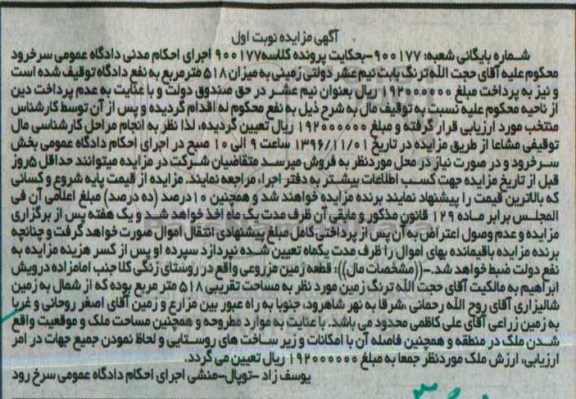 آگهی مزایده نوبت اول
شماره بایگانی شعبه: ۹۰۰۱۷۷-بحکایت پرونده کلاسه ۹۰۰۱۷۷ اجرای احکام مدنی دادگاه عمومی سرخرود
محکوم علیه آقای حجت الله ترنگ بابت نیم عشر دولتی زمینی به میزان ۵۱۸ مترمربع به نفع دادگاه توقیف شده است
و نیز به پرداخت مبلغ ۱۹۲۰۰۰۰۰۰ ریال بعنوان نیم عشر در حق صندوق دولت و با عنایت به عدم پرداخت دین
از ناحیه محکوم علیه نسبت به توقیف مال به شرح ذیل به نفع محکوم له اقدام گردیده و پس از آن توسط کارشناس
منتخب مورد ارزیابی قرار گرفته و مبلغ ۱۹۲۰۰۰۰۰۰ ریال تعیین گردیده، لذا نظر به انجام مراحل کارشناسی مال
توقیفی مشاعا از طریق مزایده در تاریخ ۱۳۹۶/۱۱/۰۱ ساعت ۹ الی ۱۰ صبح در اجرای احکام دادگاه عمومی بخش
سرخرود و در صورت نیاز در محل موردنظر به فروش میرسد متقاضیان شرکت در مزایده میتوانند حداقل ۵ روز
قبل از تاریخ مزایده جهت کسب اطلاعات بیشتر به دفتر اجرا، مراجعه نمایند. مزایده از قیمت پایه شروع و کسانی
که بالاترین قیمت را پیشنهاد نمایند برنده مزایده خواهند شد و همچنین ۱۰ درصد (ده درصد) مبلغ اعلامی آن فی
المجلس برابر ماده ۱۲۹ قانون مذکور و مابقی آن ظرف مدت یک ماه اخذ خواهد شد و یک هفته پس از برگزاری
مزایده و عدم وصول اعتراض به آن پس از پرداختی کامل مبلغ پیشنهادی انتقال اموال صورت خواهد گرفت و چنانچه
برنده مزایده باقیمانده بهای اموال را ظرف مدت یکماه تعیین شده نپردازد سپرده او پس از کسر هزینه مزایده به
نفع دولت ضبط خواهد شد.-((مشخصات مال)): قطعه زمین مزروعی واقع در روستای زنگی کلا جنب امامزاده درویش
ابراهیم به مالکیت آقای حجت الله ترنگ زمین مورد نظر به مساحت تقریبی ۵۱۸ متر مربع بوده که از شمال به زمین
شالیزاری آقای روح الله رحمانی، شرقا به نهر شاهرود، جنوبا به راه عبور بین مزارع و زمین آقای اصغر روحانی و غربا
به زمین زراعی آقای علی کاظمی محدود می باشد. با عنایت به موارد مطروحه و همچنین مساحت ملک و موقعیت واقع
شدن ملک در منطقه و همچنین فاصله آن با امکانات و زیر ساخت های روستایی و لحاظ نمودن جمیع جهات در امر
ارزیابی، ارزش ملک موردنظر جمعا به مبلغ ۱۹۲۰۰۰۰۰۰ ریال تعیین می گردد.
یوسف زاد -توپال-منشی اجرای احکام دادگاه عمومی سرخ رود